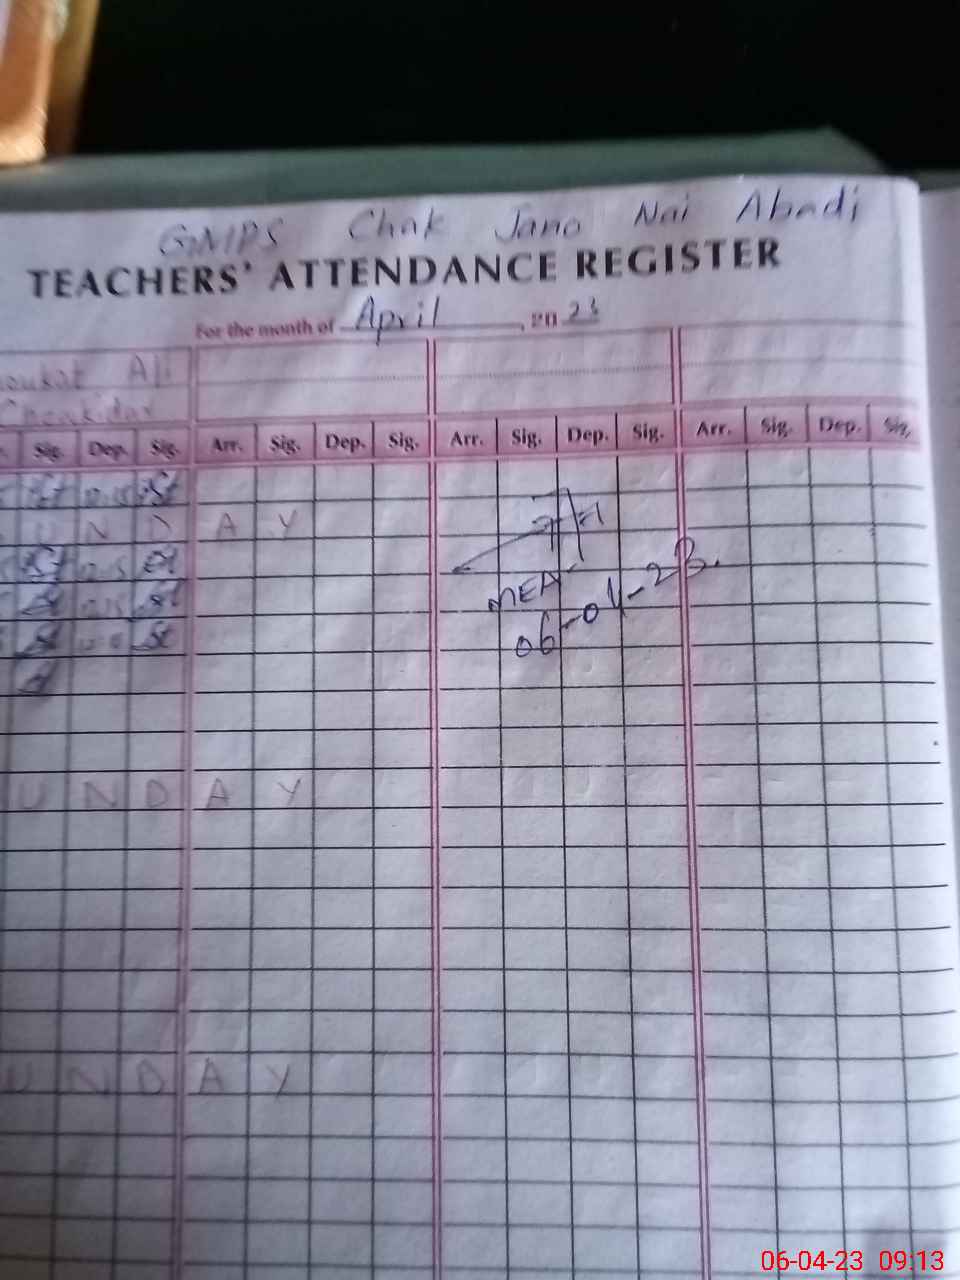 GMPS Chak Jano Nai Abadi
TEACHERS' ATTENDANCE REGISTER
For the month of April, 20 23
oukat Ali
Chowkidar
Sig. Dep. Sig. Arr. Sig. Dep. Sig. Arr. Sig. Dep. Sig. Arr. Sig. Dep. Sig.
St 12.15 St
U N D A Y
St 12.15 St
St 12.15 St
St St
MEA
06-04-23.
U N D A Y
U N D A Y
06-04-23 09:13